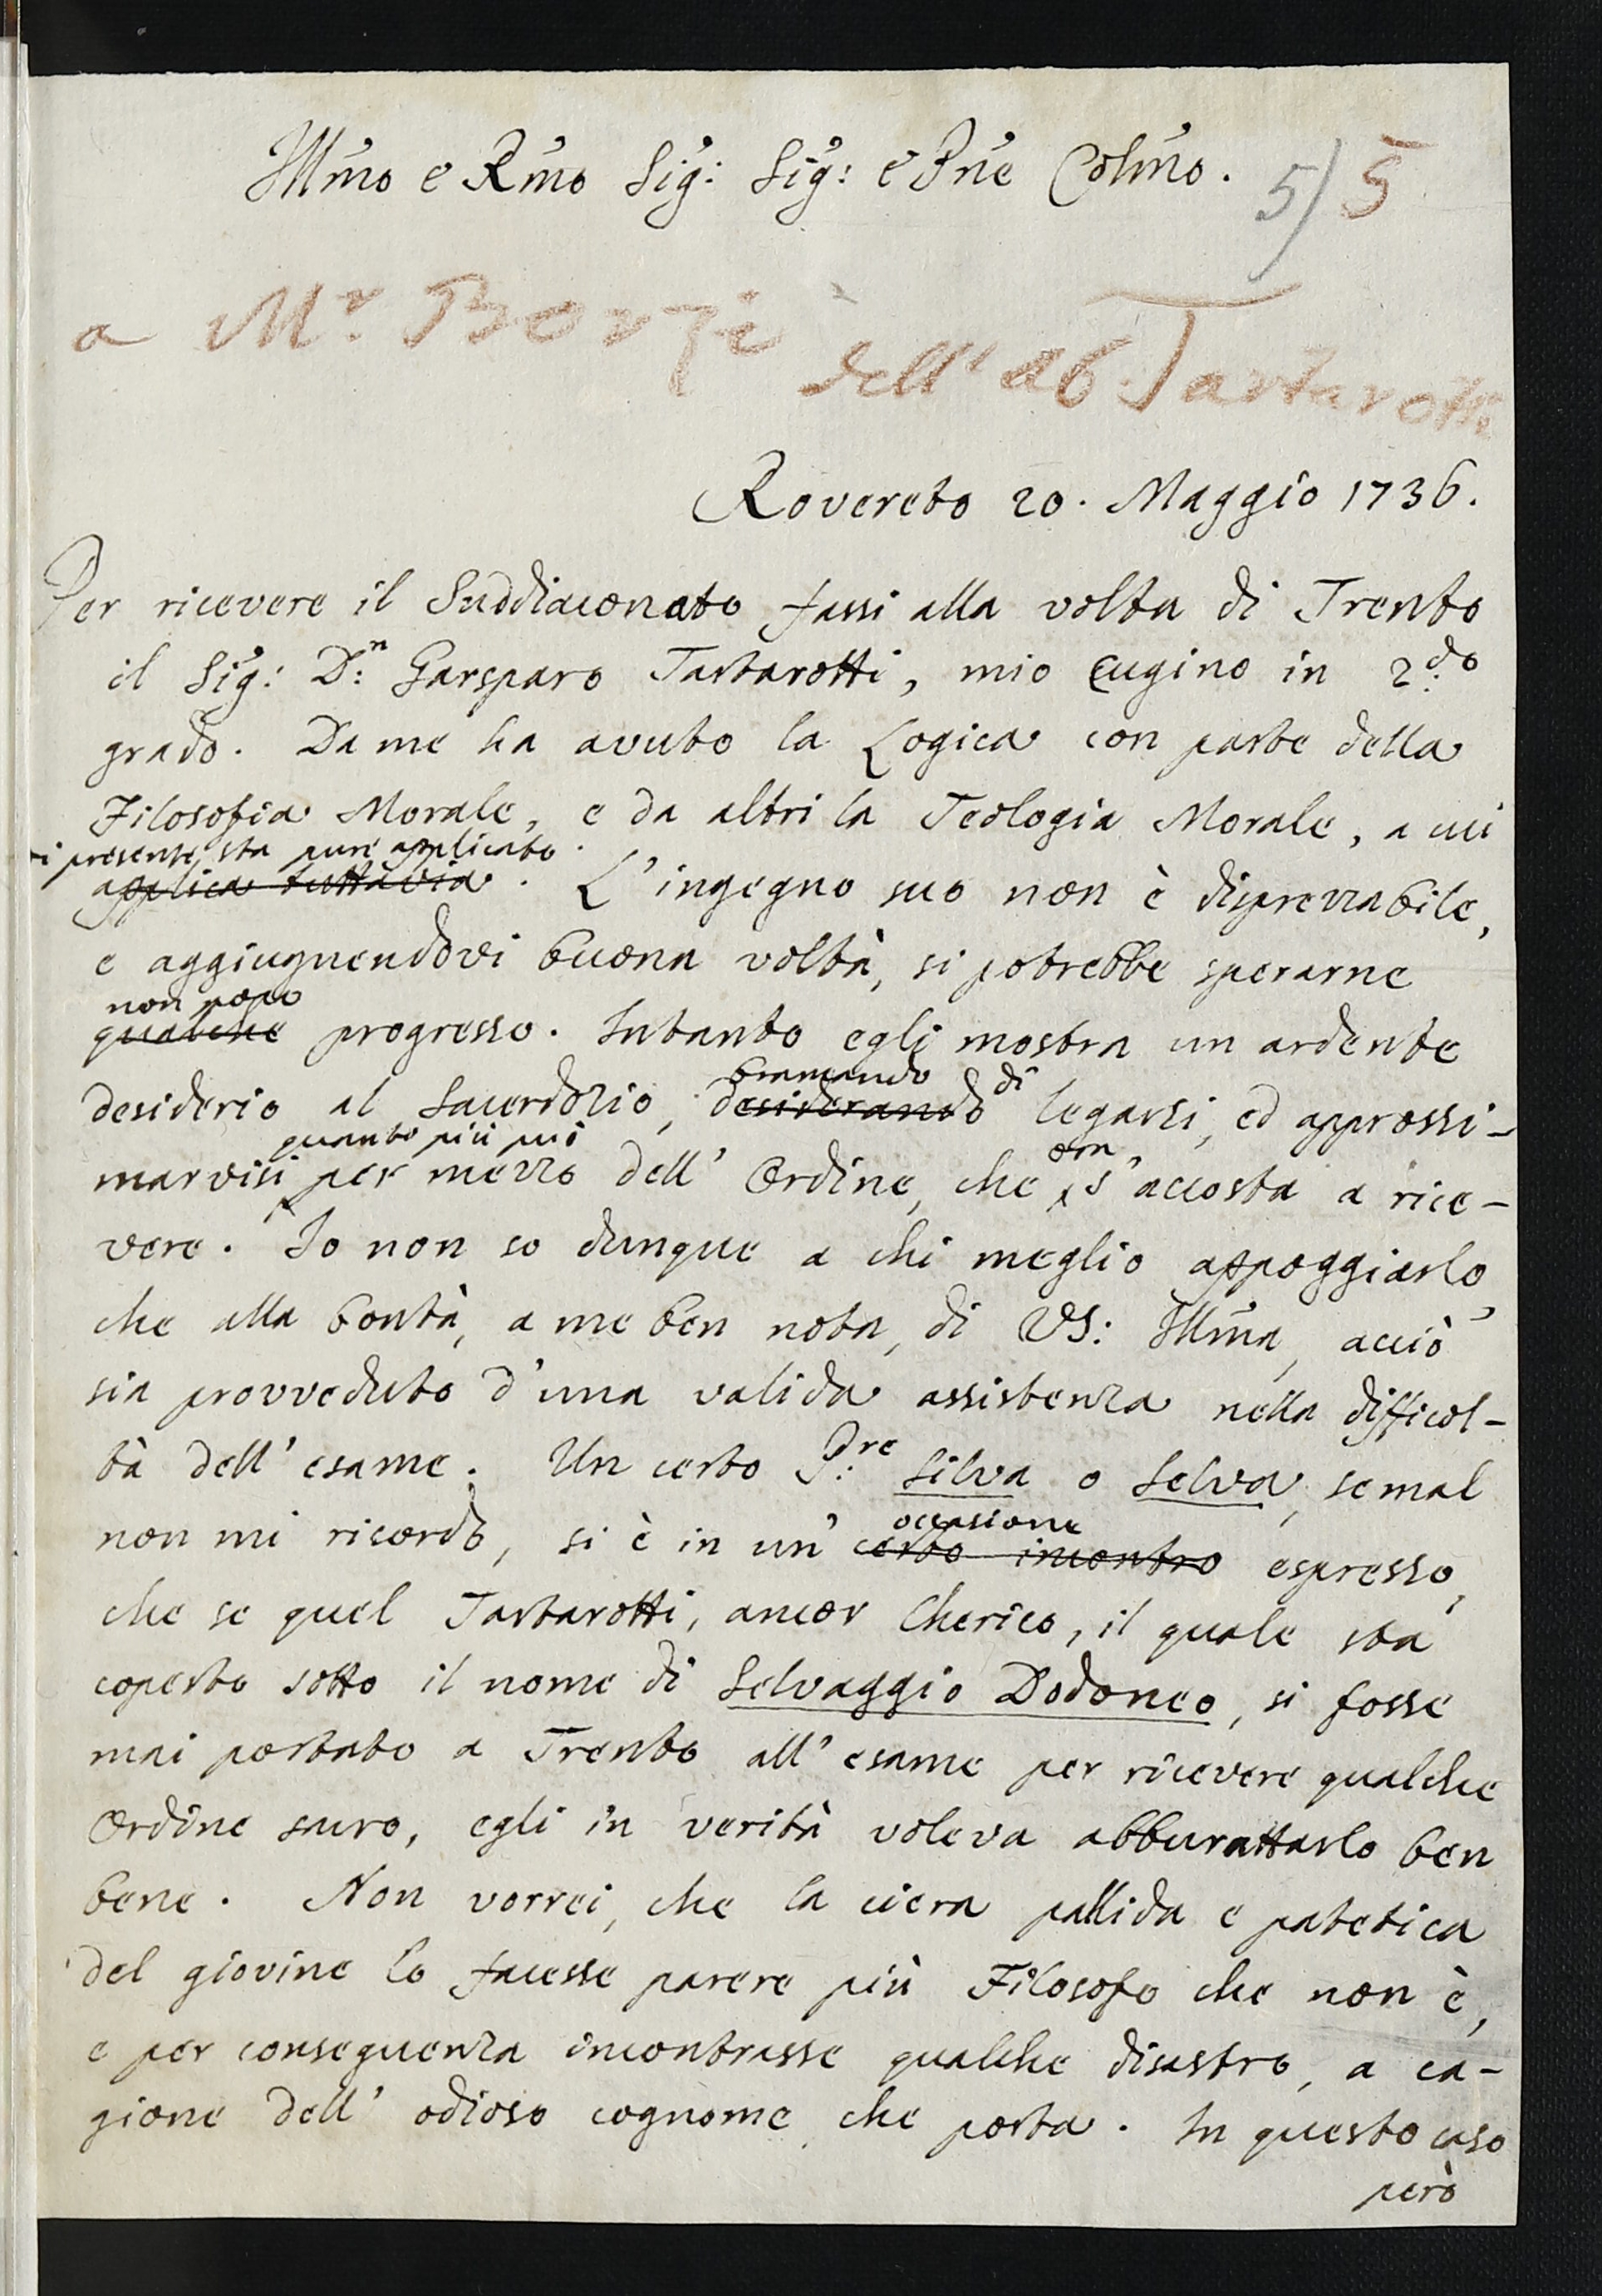 Illm̃o e Rm̃o Sig̃: Sig̃: e Pñe Colm̃o.
5) 5
a Mr. Borzi
dell' ab. Tartarotti
Rovereto 20. Maggio 1736.
Per ricevere il Suddiaconato fassi alla volta di Trento
il Sig̃: D:n Garsparo Tartarotti, mio Cugino in 2:do
grado. Da me ha avuto la Logica con parte della
Filosofia Morale, e da altri la Teologia Morale, a cui
di presente sta pure applicato.
applica tuttavia. L'ingegno suo non è disprezzabile,
e aggiugnendovi buona voltà, si potrebbe sperarne
non poco
qualche progresso. Intanto egli mostra un ardente
bramando di
desiderio al Sacerdozio, desiderando legarsi, ed approssi-
quanto più può ora
marvisi per mezzo dell' Ordine, che s'accosta a rice-
vere. Io non so dunque a chi meglio appoggiarlo,
che alla bontà, a me ben nota, di VS: Illm̃a, acciò
sia provveduto d'una valida assistenza nella difficol-
tà dell' esame. Un certo P:re Silva o Selva, se mal
occasione
non mi ricordo, si è in un' certo incontro espresso,
che se quel Tartarotti, ancor Cherico, il quale sta
coperto sotto il nome di Selvaggio Dodoneo, si fosse
mai portato a Trento all' esame per ricevere qualche
Ordine sacro, egli in verità voleva abburattarlo ben
bene. Non vorrei, che la ciera pallida e patetica
del giovine lo facesse parere più Filosofo che non è,
e per conseguenza incontrasse qualche disastro, a ca-
gione dell' odioso cognome che porta. In questo caso
però